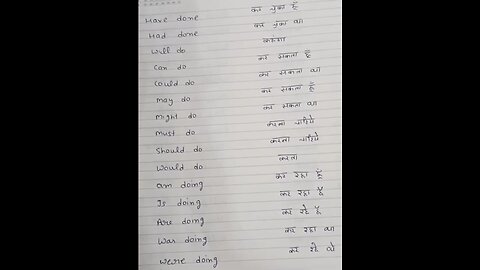 Have done कर चुका हूँ
Had done कर चुका था
Will do करूंगा
Can do कर सकता हूँ
Could do कर सकता था
May do कर सकता हूँ
Might do कर सकता था
Must do करना चाहिये
Should do करना चाहिये
Would do करता
am doing कर रहा हूँ
Is doing कर रहा हूँ
Are doing कर रहे हैं
Was doing कर रहा था
Were doing कर रहे थे